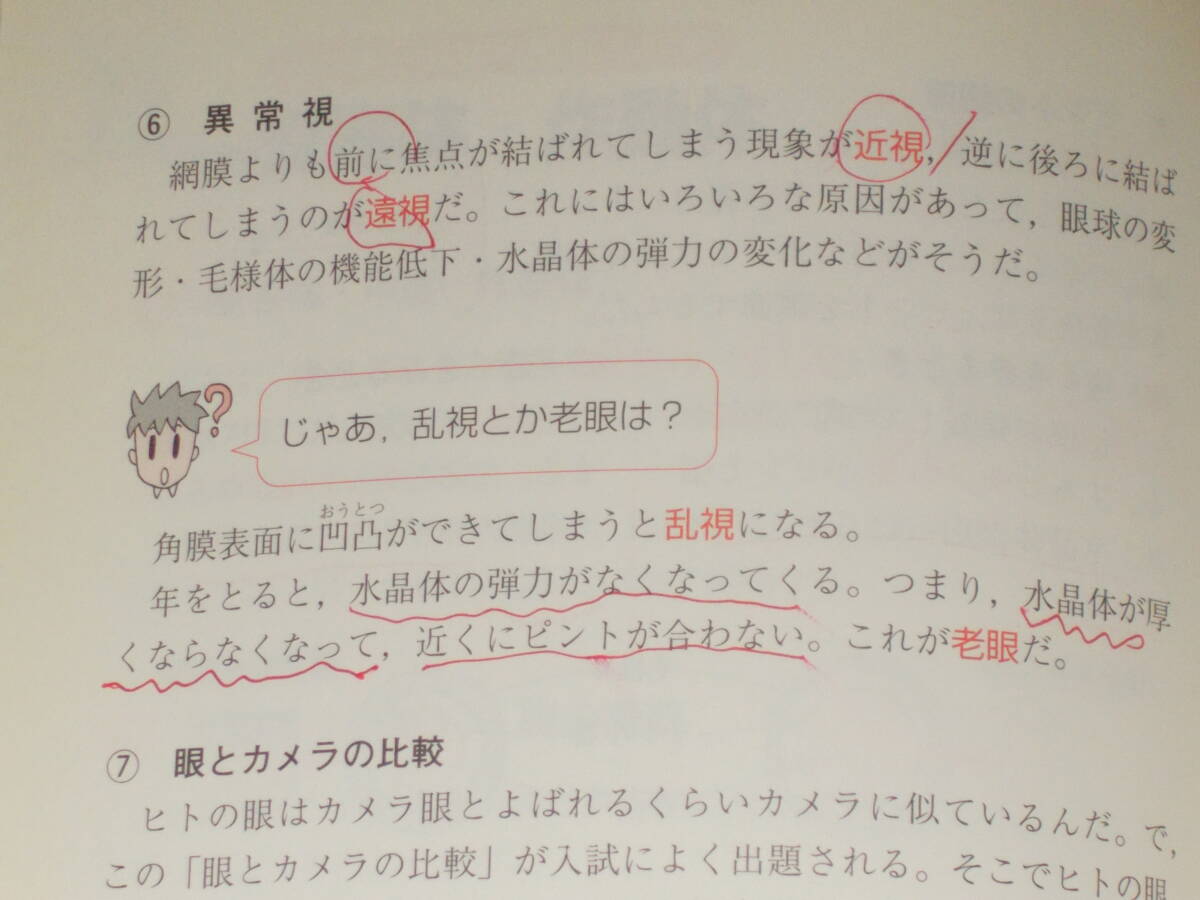 ⑥ 異常視
網膜よりも前に焦点が結ばれてしまう現象が近視，逆に後ろに結ば
れてしまうのが遠視だ。これにはいろいろな原因があって，眼球の変
形・毛様体の機能低下・水晶体の弾力の変化などがそうだ。
?
じゃあ，乱視とか老眼は？
おうとつ
角膜表面に凹凸ができてしまうと乱視になる。
年をとると，水晶体の弾力がなくなってくる。つまり，水晶体が厚
くならなくなって，近くにピントが合わない。これが老眼だ。
⑦ 眼とカメラの比較
ヒトの眼はカメラ眼とよばれるくらいカメラに似ているんだ。で，
この「眼とカメラの比較」が入試によく出題される。そこでヒトの眼